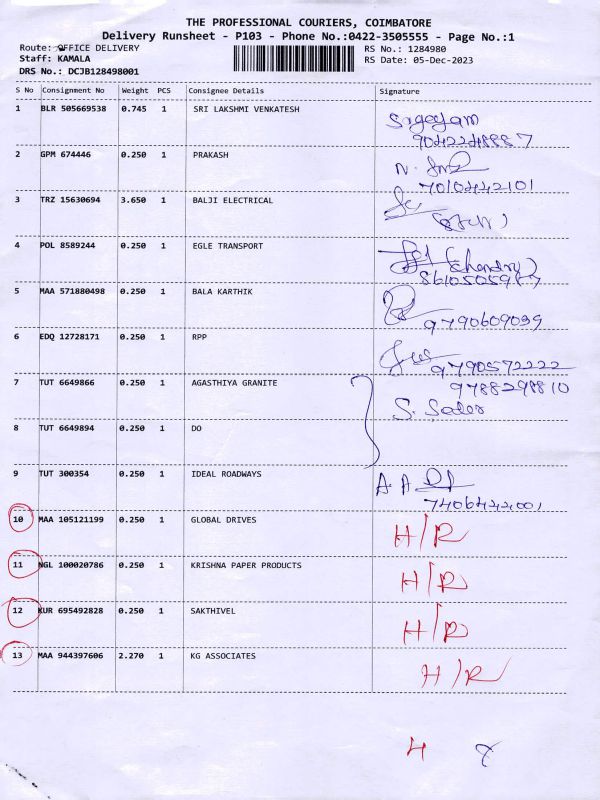 THE PROFESSIONAL COURIERS, COIMBATORE
Delivery Runsheet - P103 - Phone No.:0422-3505555 - Page No.:1
Route: OFFICE DELIVERY
RS No.: 1284980
Staff: KAMALA
RS Date: 05-Dec-2023
DRS No.: DCJB128498001
S No Consignment No Weight PCS Consignee Details Signature
1 BLR 505669538 0.745 1 SRI LAKSHMI VENKATESH
9042248887
2 GPM 674446 0.250 1 PRAKASH
7010442101
3 TRZ 15630694 3.650 1 BALJI ELECTRICAL
4 POL 8589244 0.250 1 EGLE TRANSPORT
5 MAA 571880498 0.250 1 BALA KARTHIK
9790609039
6 EDQ 12728171 0.250 1 RPP
9790572222
7 TUT 6649866 0.250 1 AGASTHIYA GRANITE
9788298810
8 TUT 6649894 0.250 1 DO
9 TUT 300354 0.250 1 IDEAL ROADWAYS
10 MAA 105121199 0.250 1 GLOBAL DRIVES H/R
11 NGL 100020786 0.250 1 KRISHNA PAPER PRODUCTS H/R
12 KUR 695492828 0.250 1 SAKTHIVEL H/R
13 MAA 944397606 2.270 1 KG ASSOCIATES H/R
4